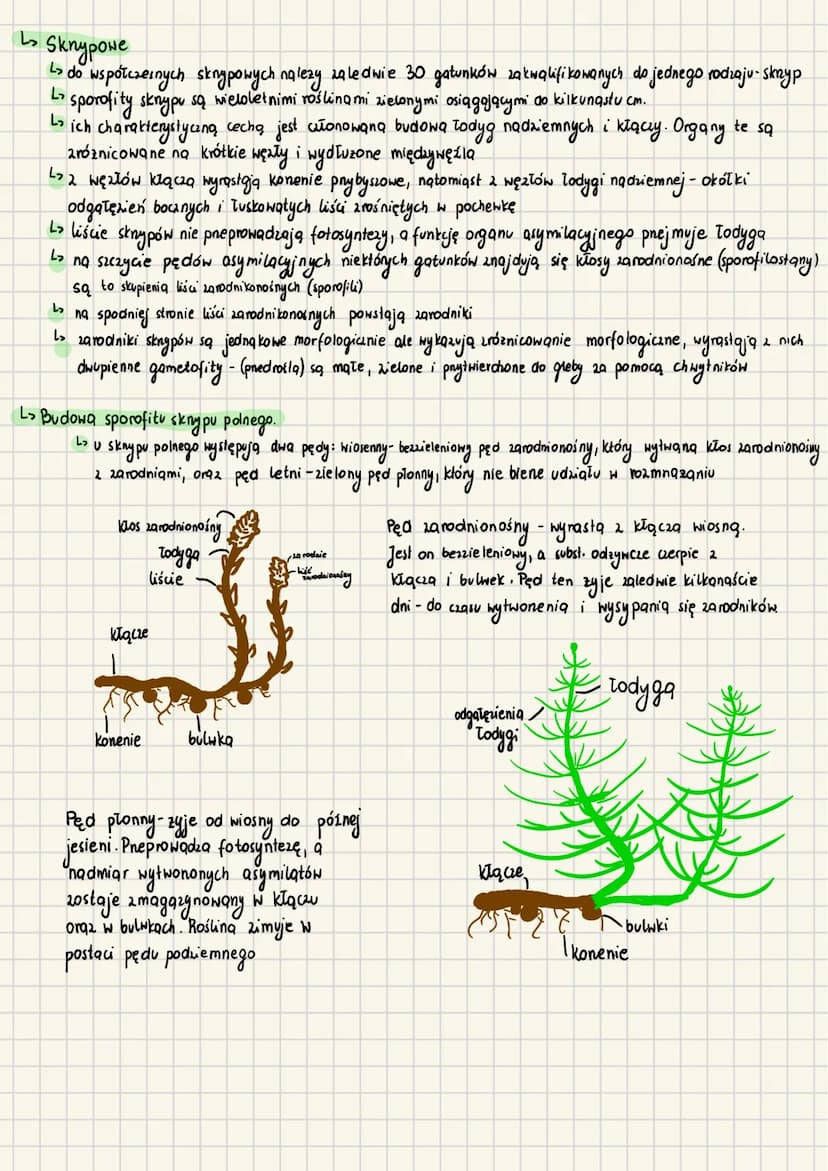 ↳ Skrzypowe
↳ do współczesnych skrzypowych należy zaledwie 30 gatunków zakwalifikowanych do jednego rodzaju - skrzyp
↳ sporofity skrzypu są wieloletnimi roślinami zielonymi osiągającymi do kilkunastu cm.
↳ ich charakterystyczną cechą jest członowana budowa łodyg nadziemnych i kłączy. Organy te są
zróżnicowane na krótkie węzły i wydłużone międzywęźla
↳ z węzłów kłącza wyrastają korzenie przybyszowe, natomiast z węzłów łodygi nadziemnej - okółki
odgałęzień bocznych i łuskowatych liści zrośniętych w pochewkę
↳ liście skrzypów nie przeprowadzają fotosyntezy, a funkcję organu asymilacyjnego przejmuje łodyga
↳ na szczycie pędów asymilacyjnych niektórych gatunków znajdują się kłosy zarodnionośne (sporofilostany)
są to skupienia liści zarodnikonośnych (sporofili)
↳ na spodniej stronie liści zarodnikonośnych powstają zarodniki
↳ zarodniki skrzypów są jednakowe morfologicznie ale wykazują zróżnicowanie morfologiczne, wyrastają z nich
dwupienne gametofity - (przedrośla) są małe, zielone i przytwierdzone do gleby za pomocą chwytników
↳ Budowa sporofitu skrzypu polnego.
↳ U skrzypu polnego występują dwa pędy: wiosenny - bezzieleniowy pęd zarodnionośny, który wytwarza kłos zarodnionośny
z zarodniami, oraz pęd letni - zielony pęd płonny, który nie bierze udziału w rozmnażaniu
kłos zarodnionośny
łodyga
liście
zarodnie
liść
zarodnionośny
kłącze
korzenie
bulwka
Pęd zarodnionośny - wyrasta z kłącza wiosną.
Jest on bezzieleniowy, a subst. odżywcze czerpie z
kłącza i bulwek. Pęd ten żyje zaledwie kilkanaście
dni - do czasu wytworzenia i wysypania się zarodników
łodyga
odgałęzienia
łodygi
kłącze
bulwki
korzenie
Pęd płonny - żyje od wiosny do późnej
jesieni. Przeprowadza fotosyntezę, a
nadmiar wytworzonych asymilatów
zostaje zmagazynowany w kłączu
oraz w bulwkach. Roślina zimuje w
postaci pędu podziemnego